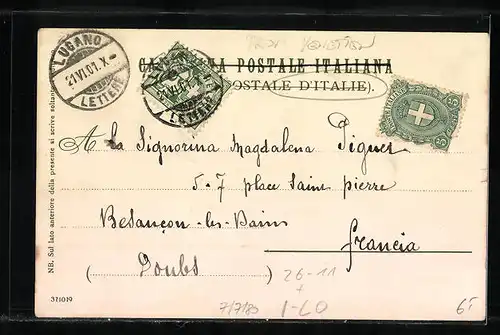 LUGANO
21 VI.01.X
LETTERE
CARTOLINA POSTALE ITALIANA
POSTALE D'ITALIE).
5
A La Signorina Magdalena Piguet
5-7 place Saint pierre
Besançon-les-Bains
francia
(Doubs)
26-11
+
7/7/83
1-LO
65
NB. Sul lato anteriore della presente si scrive soltanto
371019